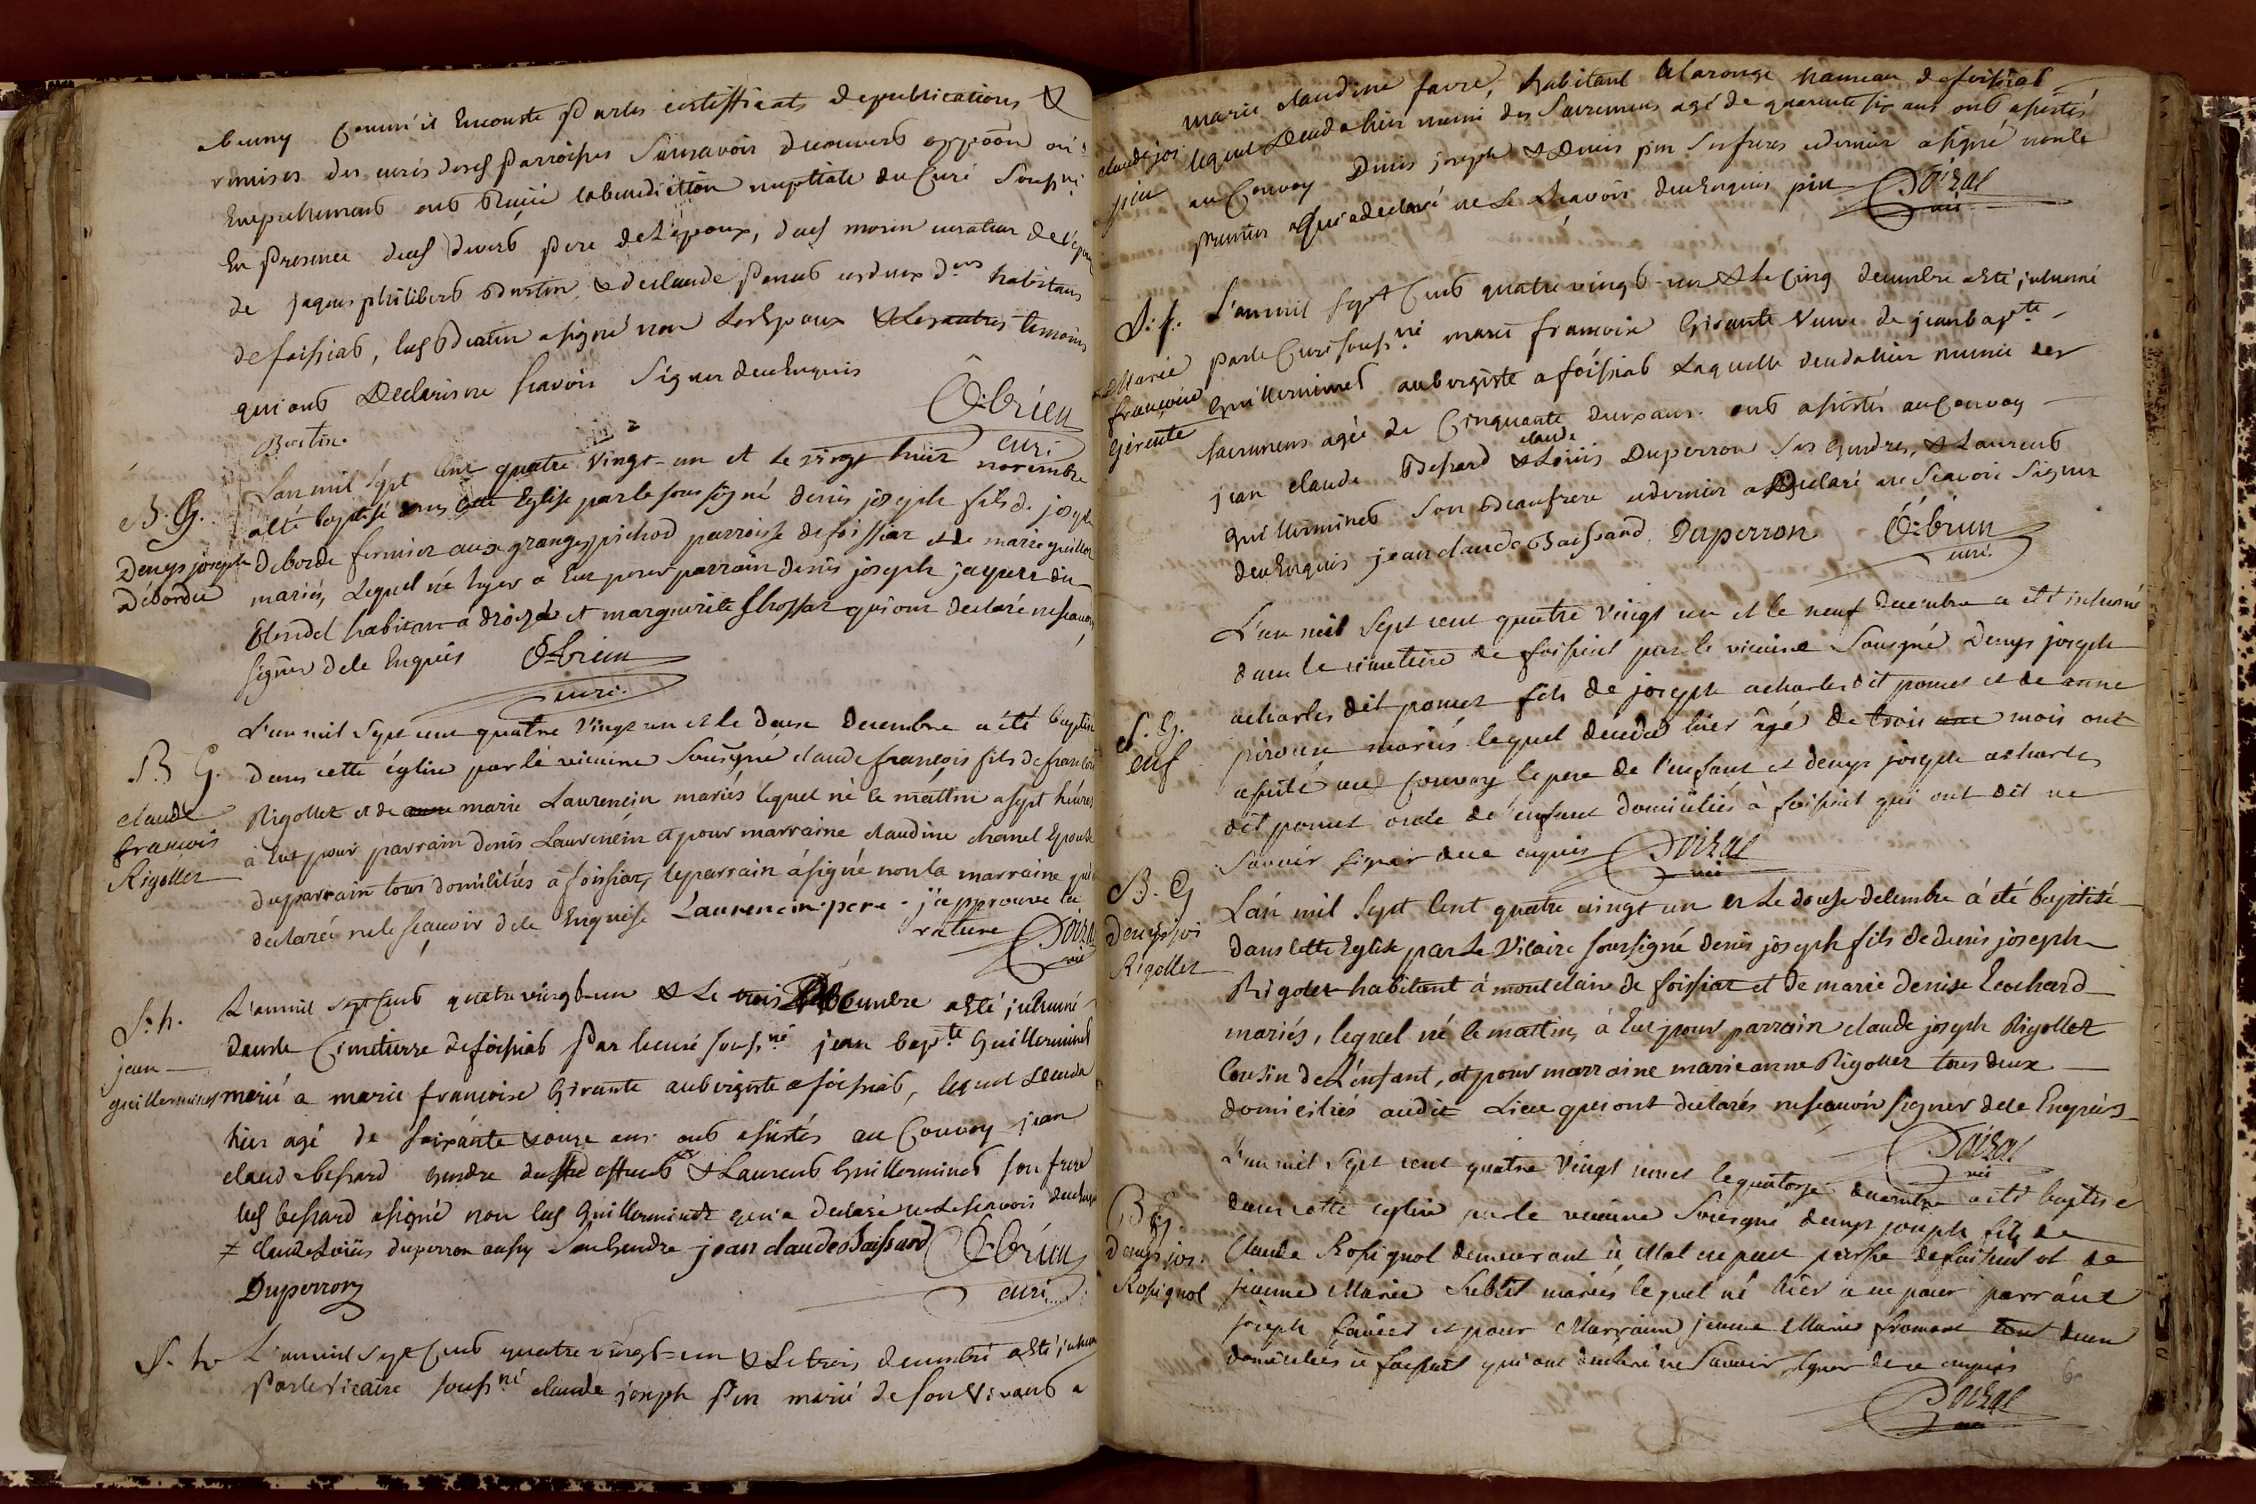 comm'il Enconste Par les certifficats de publications &
remises des curés desd parroisses Sans avoir decouvert oppoõn ni
Empechement ont Reçu la benediction nuptiale du Curé Sousné
En presence dud pere de L'epoux, dud morin curateur de L'epouse
de jaques philibert & de claude ces deux ders habitans
de foissiat, led a signé non Les Epoux & Les autres temoins
qui ont Declaré ne scavoir Signer deux Enquis
Obrien
curé
B. G.
Denys joseph
Deborde
L'an mil sept cent quatre vingt-un et le vingt huit novembre
a été baptisé dans cette Eglise par le sous signé denis joseph fils de joseph
deborde fermier aux granges pichod parroisse de foissiat et de marie guillot
mariés, Lequel né hyer a Eut pour parrain denis joseph
habitant a et marguerite qui ont declaré ne scavoir
signer de le Enquis Obrien
curé
B. G.
claude
francois
Rigollet
L'an mil sept cent quatre vingt un et le deux decembre a été baptisé
dans cette église par le vicaire Sousigné claude françois fils de francois
Rigollet et de marie Laurencin mariés lequel né le mattin a sept heures
à Eut pour parrain denis Laurencin et pour marraine claudine chanel Epouse
du parrain tous domiciliés à foissiat, le parrain à signé non la marraine qui a
declarée ne le scauoir de le Enquise Laurencin pere j'approuve la
rature
vic
S. h.
jean
guillerminet
L'an mil sept Cent quatre vingt-un & Le trois Decembre a Eté inhumé
dans le Cimetierre de foissiat Par le curé sousné jean bapte Guillerminet
marié a marie francoise Girante aubergiste a foissiat, lequel deceda
hier agé de soixante & onze ans ont assistés au Convoy jean
claud bessard gendre & Laurent Guillerminet son frere
led bessard a signé non led Guillerminet qui a declaré ne Le scavoir
≠ claude Loüis duperron aussy Son Gendre jean claude baissard Obrien
Duperron
curé
S. h
L'an mil sept Cent quatre vingt-un & Le trois decembre a Eté inhumé
Par le Vicaire sousné claude joseph Pin marié de son Vivant a
claude jos
pin
marie claudine favre, habitant hameau de foissiat
lequel deceda hier muni des Sacremens agé de quarante six ans ont assistés
au Convoy Denis joseph & Denis pin Ses freres ce dernier a signé non le
premier qui a declaré ne Le Scavoir deux Enquis pin
vic
S. f.
Marie
francoise
Gerente
L'an mil sept Cent quatre vingt-un & Le Cinq decembre a Eté inhumé
par le Curé sousné marie francoise Girante Veuve de jean bapte
Guillerminet aubergiste a foissiat Laquelle deceda hier munie des
sacremens agée de Cinquante deux ans ont assistés au Convoy
claude
jean claude Bessard & Loüis Duperron Ses Gendres, & Laurent
Guillerminet Son Beaufrere ce dernier a Declaré ne Scavoir Signer
deux Enquis jean claude Baissard Duperron Obrien
curé
S. G.
enf
L'an mil Sept cent quatre vingt un et le neuf Decembre a été inhumé
dans le cimetiere de foissiat par le vicaire Sousigné Denys joseph
acharles dit pomet fils de joseph acharles dit pomet et de anne
mariés lequel deceda hier âgé de trois mois ont
assisté au Convoy le pere de l'enfant et denys joseph acharles
dit pomet oncle de l'enfant domiciliés à foissiat qui ont dit ne
Savoir signer de ce enquis
vic
B. G
denys jos
Rigollet
L'an mil Sept Cent quatre vingt un et Le douse decembre à été baptisé
dans cette Eglise par Le Vicaire soussigné denis joseph fils de denis joseph
Rigolet habitant à montclair de foissiat et de marie denise Leochard
mariés, lequel né le mattin, à Eut pour parrain claude joseph Rigollet
Cousin de L'enfant, et pour marraine marie anne Rigollet tous deux
domiciliés audit Lieu qui ont declarés ne scauoir signer de le Enquis
vic
B G.
denys jos.
Rossignol
L'an mil Sept cent quatre vingt un et le quatorze decembre a été baptisé
dans cette eglise par le vicaire Sousigné denys joseph fils de
Claude Rossignol demeurant à parsse de foissiat et de
jeanne Marie mariés lequel né hier a eu pour parrain
joseph et pour Marraine jeanne Marie froment tous deux
domiciliés à foissiat qui ont declaré ne Savoir signer de ce enquis
vic